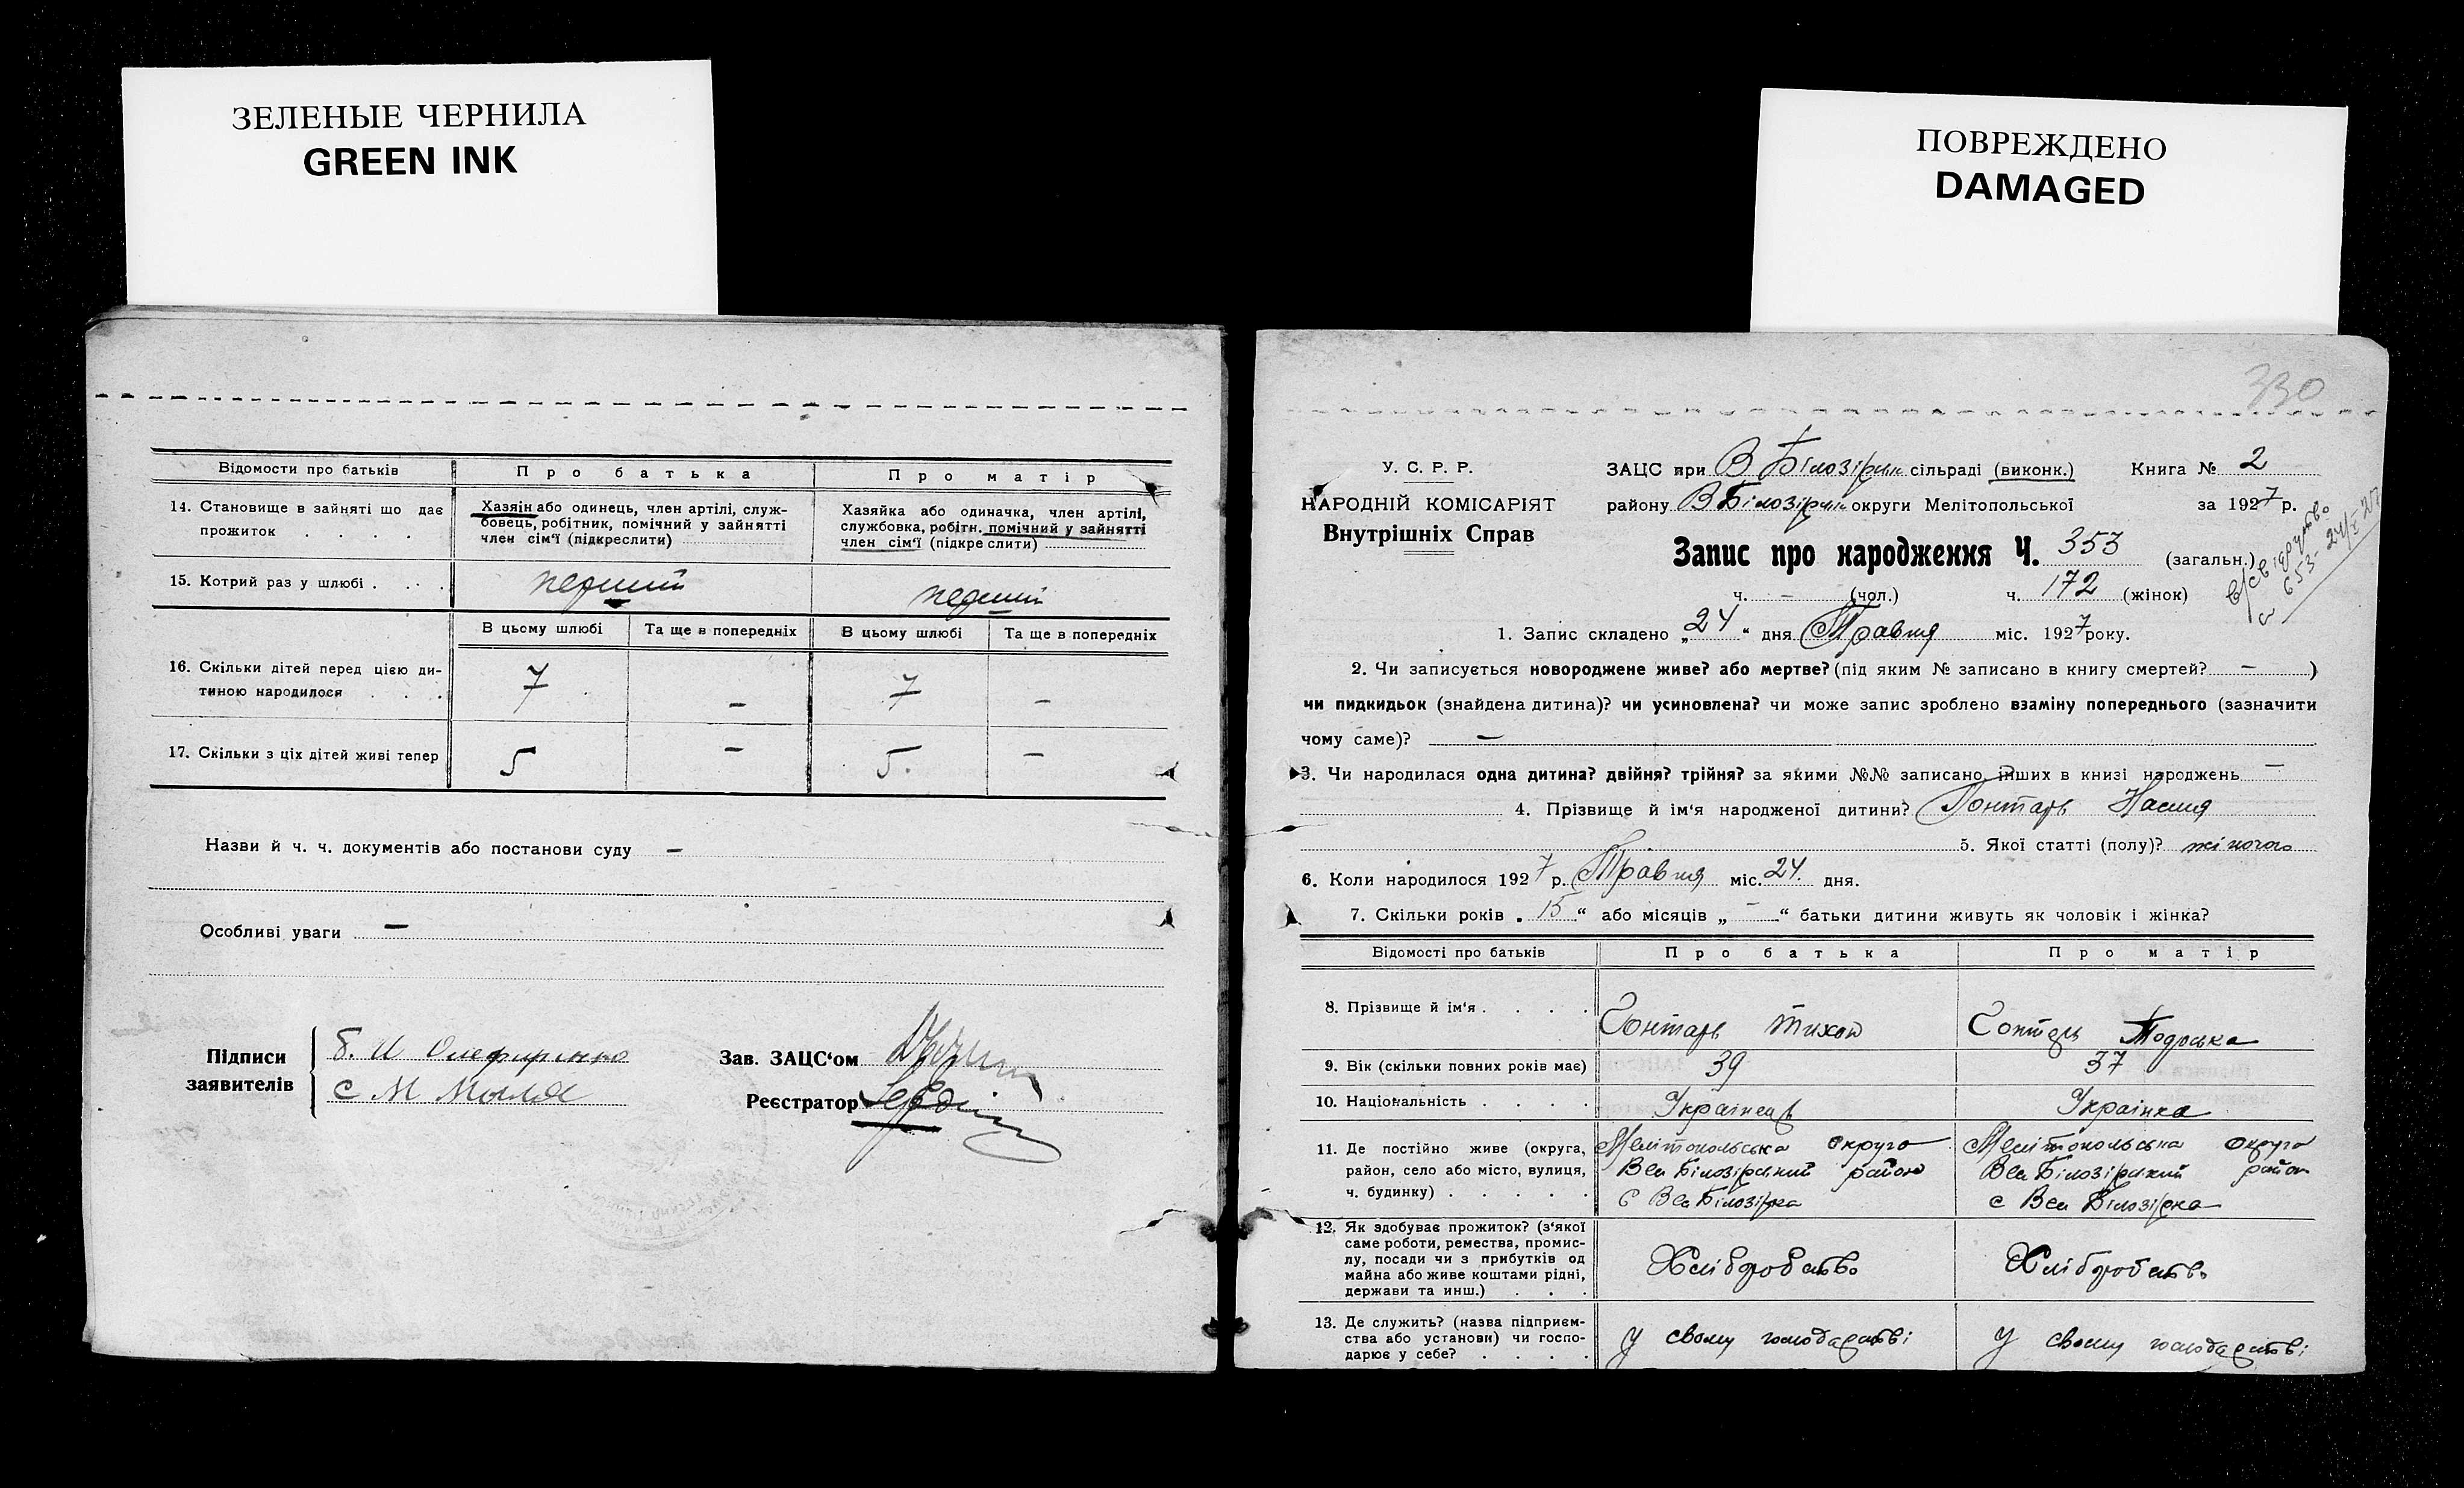 ЗЕЛЕНЫЕ ЧЕРНИЛА
GREEN INK
ПОВРЕЖДЕНО
DAMAGED
Відомости про батьків Про батька Про матір
14. Становище в зайняті що дає прожиток . . . .
Хазяїн або одинець, член артілі, служ-
бовець, робітник, помічний у зайнятті
член сім'ї (підкреслити)
Хазяйка або одиначка, член артілі,
службовка, робітн. помічний у зайнятті
член сім'ї (підкреслити)
15. Котрий раз у шлюбі . . . . перший перший
В цьому шлюбі Та ще в попередніх В цьому шлюбі Та ще в попередніх
16. Скільки дітей перед цією ди-
тиною народилося . . . 7 – 7 –
17. Скільки з ціх дітей живі тепер 5 – 5. –
Назви й ч. ч. документів або постанови суду –
Особливі уваги –
Підписи
заявителів
С М
Зав. ЗАЦС'ом
Реєстратор
330
У. С. Р. Р.
НАРОДНІЙ КОМІСАРІЯТ
Внутрішніх Справ
ЗАЦС при В Білозірки сільраді (виконк.) Книга № 2
району В Білозірки округи Мелітопольської за 1927 р.
Запис про народження Ч. 353 (загальн.)
ч. – (чол.) ч. 172 (жінок)
653 24/5 27
1. Запис складено „24“ дня Травня міс. 1927 року.
2. Чи записується новороджене живе? або мертве? (під яким № записано в книгу смертей? – )
чи пидкидьок (знайдена дитина)? чи усиновлена? чи може запис зроблено взаміну попереднього (зазначити
чому саме)? –
3. Чи народилася одна дитина? двійня? трійня? за якими №№ записано інших в книзі народжень –
4. Прізвище й ім'я народженої дитини? Гонтарь Насця
5. Якої статті (полу)? жіночого
6. Коли народилося 1927 р. Травня міс. 24. дня.
7. Скільки років „15“ або місяців „–“ батьки дитини живуть як чоловік і жінка?
Відомості про батьків Про батька Про матір
8. Прізвище й ім'я . . . . Гонтарь Тихон Гонтарь Тодоська
9. Вік (скільки повних років має) 39 37
10. Національність . . . . Українець Українка
11. Де постійно живе (округа, Мелітопольська округа Мелітопольська округа
район, село або місто, вулиця, Вел Білозірський район Вел Білозірский район
ч. будинку) . . . . . с Вел Білозірка с Вел Білозірка
12. Як здобуває прожиток? (з'якої
саме роботи, ремества, промис-
лу, посади чи з прибутків од
майна або живе коштами рідні,
держави та инш.) . . . Хліборобство Хліборобство
13. Де служить? (назва підприєм-
ства або установи) чи госпо-
дарює у себе? . . . . у свому господарстві у свому господарстві